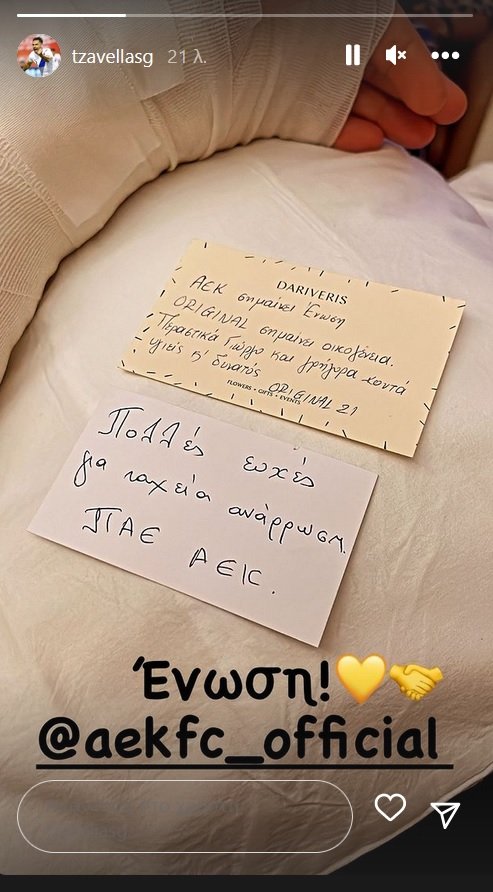 tzavellasg 21 λ.
DARIVERIS
ΑΕΚ σημαίνει Ένωση
ORIGINAL σημαίνει οικογένεια.
Περαστικά Γιώργο και γρήγορα κοντά
υγιείς κι' δυνατός ORIGINAL 21
FLOWERS • GIFTS • EVENTS
Πολλές ευχές
για ταχεία ανάρρωση.
ΠΑΕ ΑΕΚ.
Ένωση!💛🤝
@aekfc_official